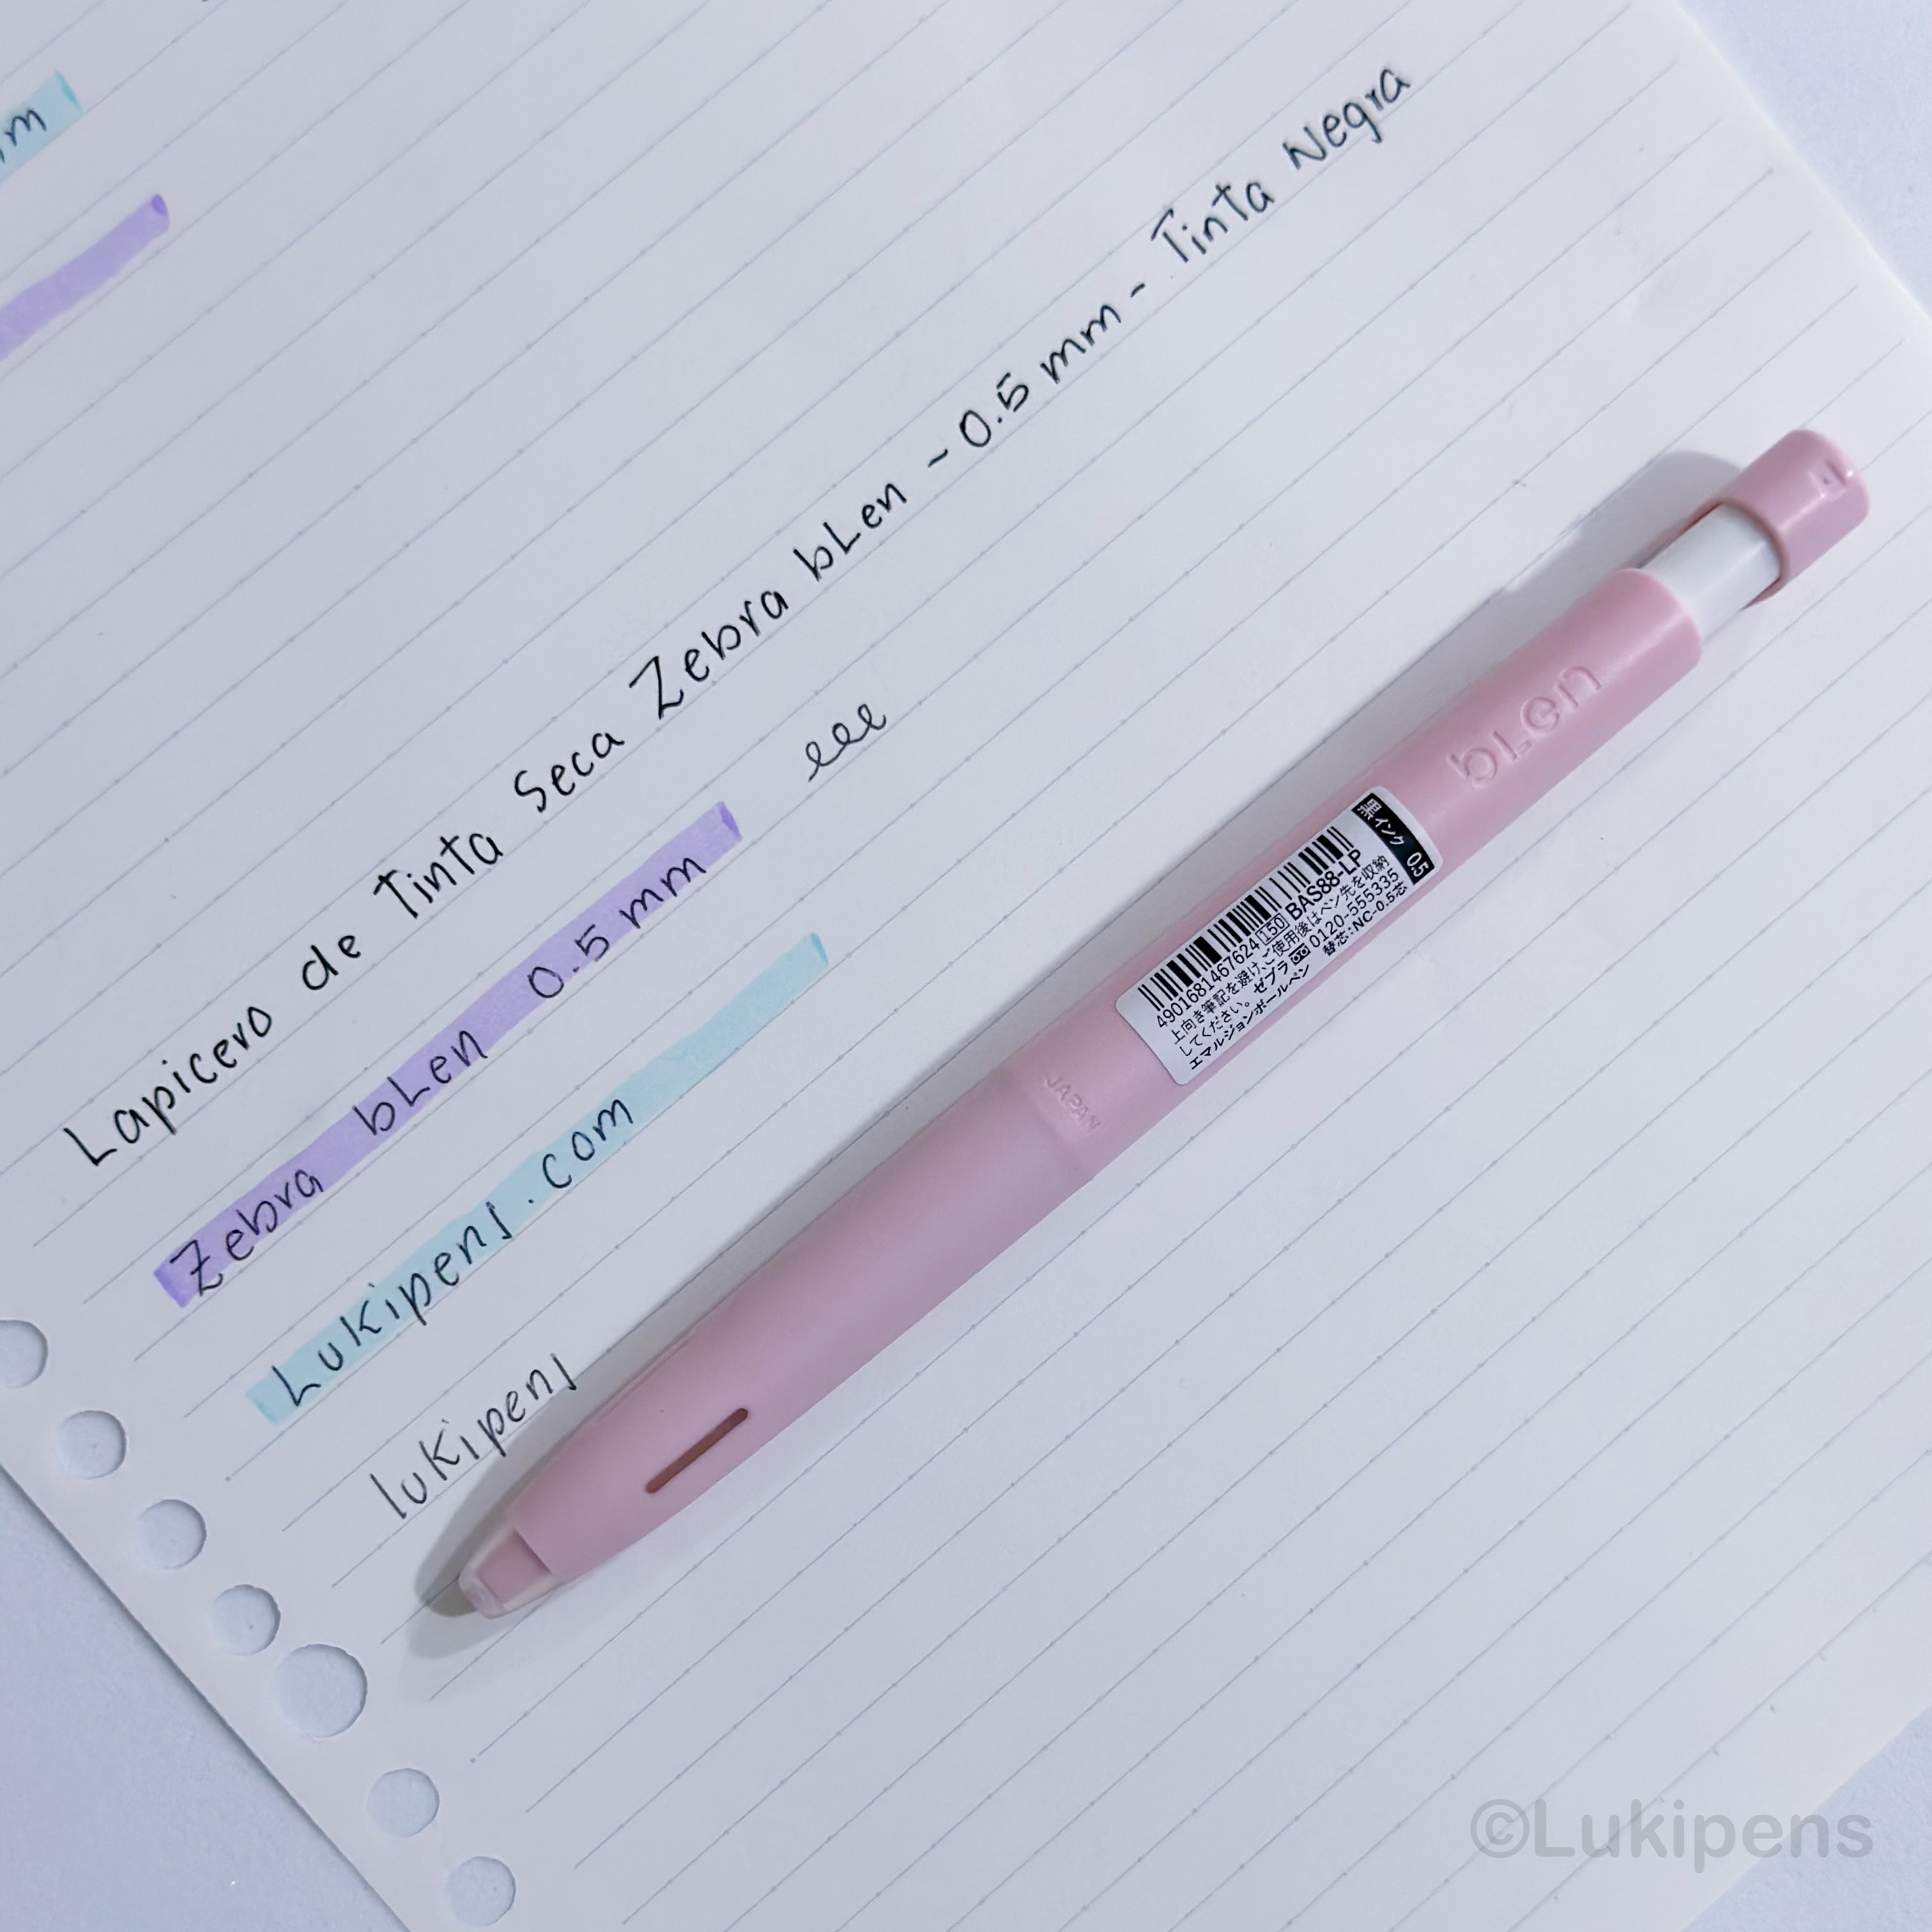 mm
Lapicero de Tinta Seca Zebra bLen ~ 0.5 mm - Tinta Negra
Zebra bLen 0.5 mm
Lukipens.com
lukipens
bLen
黒インク 05
4901681467624 150 BAS88-LP
上向き筆記を避け、ご使用後はペン先を収納
してください。ゼブラ 0120-555335
エマルジョンボールペン 替芯:NC-0.5芯
JAPAN
©Lukipens